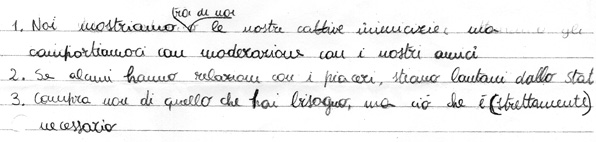 fra di noi
1. Noi mostriamo le nostre cattive inimicizie, ma gli
comportiamoci con moderazione con i nostri amici
2. Se alcuni hanno relazioni con i piaceri, stiano lontani dallo stat
3. Compra non di quello che hai bisogno, ma ciò che è (strettamente)
necessario